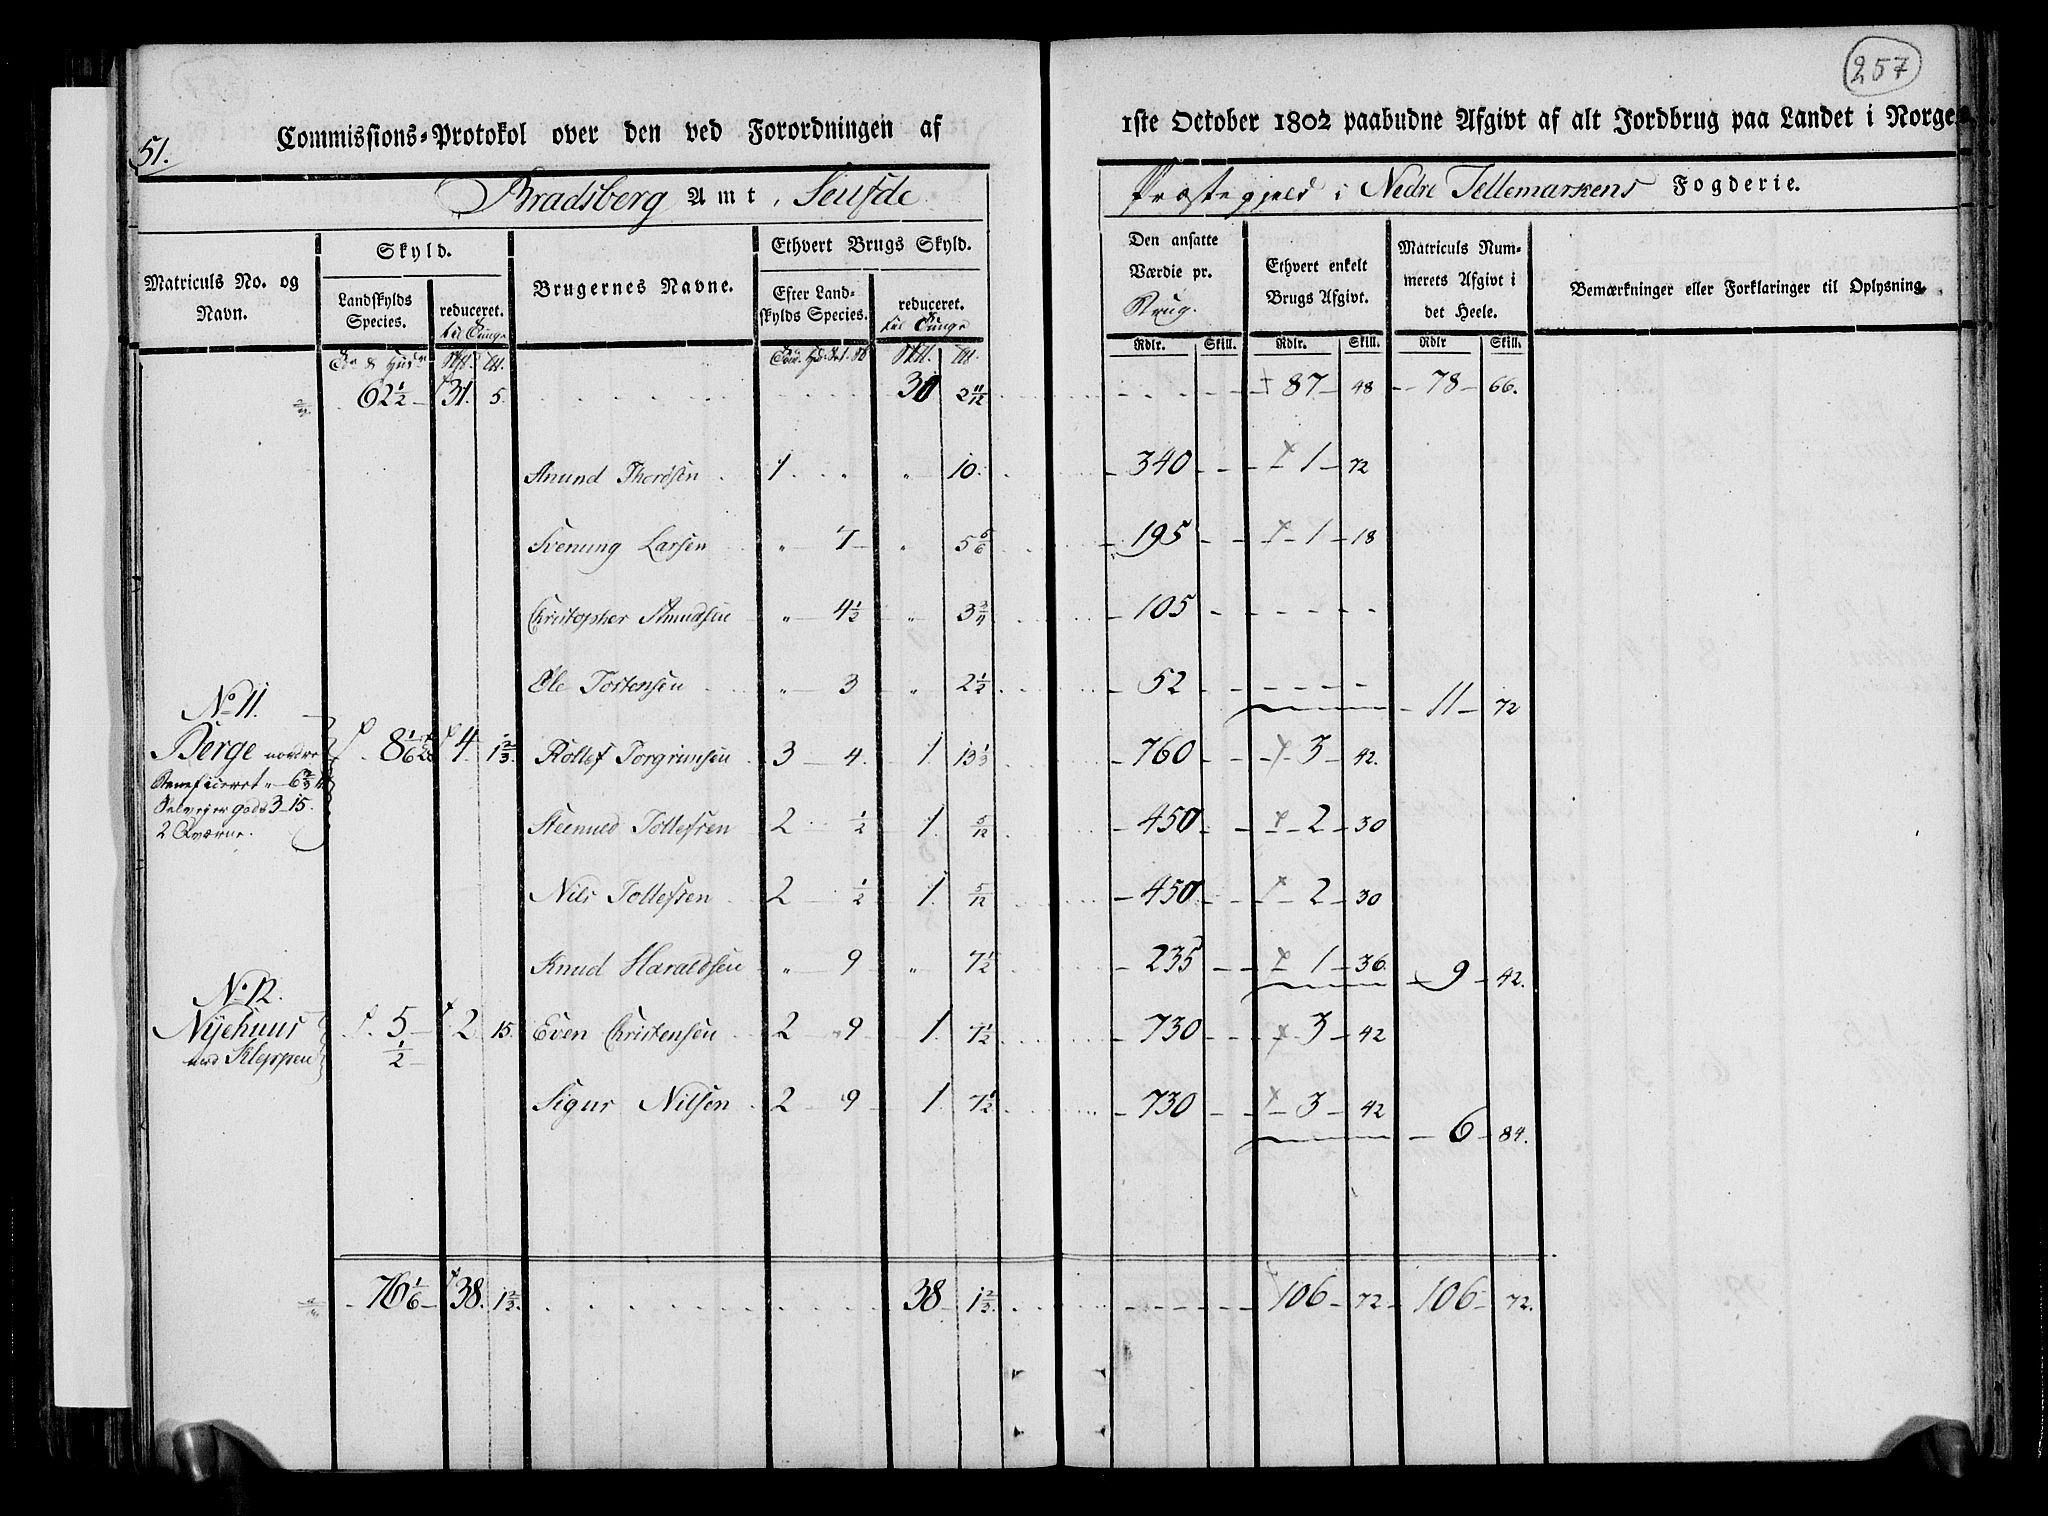 257
51.
Commissions-Protokol over den ved Forordningen af 1ste October 1802 paabudne Afgivt af alt Jordbrug paa Landet i Norge.
Bradsberg Amt, Seufde Præstegjeld i Nedre Tellemarkens Fogderie.
Matriculs No. og Navn.
Skyld.
Landskylds Species.
reduceret.
til Tunge
Brugernes Navne.
Ethvert Brugs Skyld.
Efter Landskylds Species.
reduceret.
til Tunge
Den ansatte Værdie pr. Brug.
Ethvert enkelt Brugs Afgivt.
Matriculs Nummerets Afgivt i det Heele.
Bemærkninger eller Forklaringer til Oplysning.
Rdlr. Skill. Rdlr. Skill. Rdlr Skill.
62 1/2 31. 5. 30 2 11/12 87 48 78 66.
Anund Thorsen 1 " " 10. 340 1 72
Svenung Larsen " 7 " 5 5/6 195 1 18
Christopher Amundsen " 4 1/2 " 3 3/4 105
Ole Tostensen " 3 " 2 1/2 52 11 72
No 11.
Berge nordre 8 1/6 4 1 2/3 Rollef Torgrimsen 3 4 1 13 1/3 760 3 42.
Beneficeret " 6 2/3
Selveyer gods 3 15.
2 Qværne.
Steenud Tollefsen 2 1/2 1 5/12 450 2 30
Nils Tollefsen 2 1/2 1 5/12 450 2 30
Knud Haraldsen " 9 " 7 1/2 235 1 36. 9 42.
No 12.
Nyehuus 5 1/2 2 15. Even Christensen 2 9 1 7 1/2 730 3 42
med Kleppen
Sigur Nilsen 2 9 1 7 1/2 730 3 42 6 84.
76 1/6 38. 1 2/3. 38 1 2/3. 106 72 106 72.